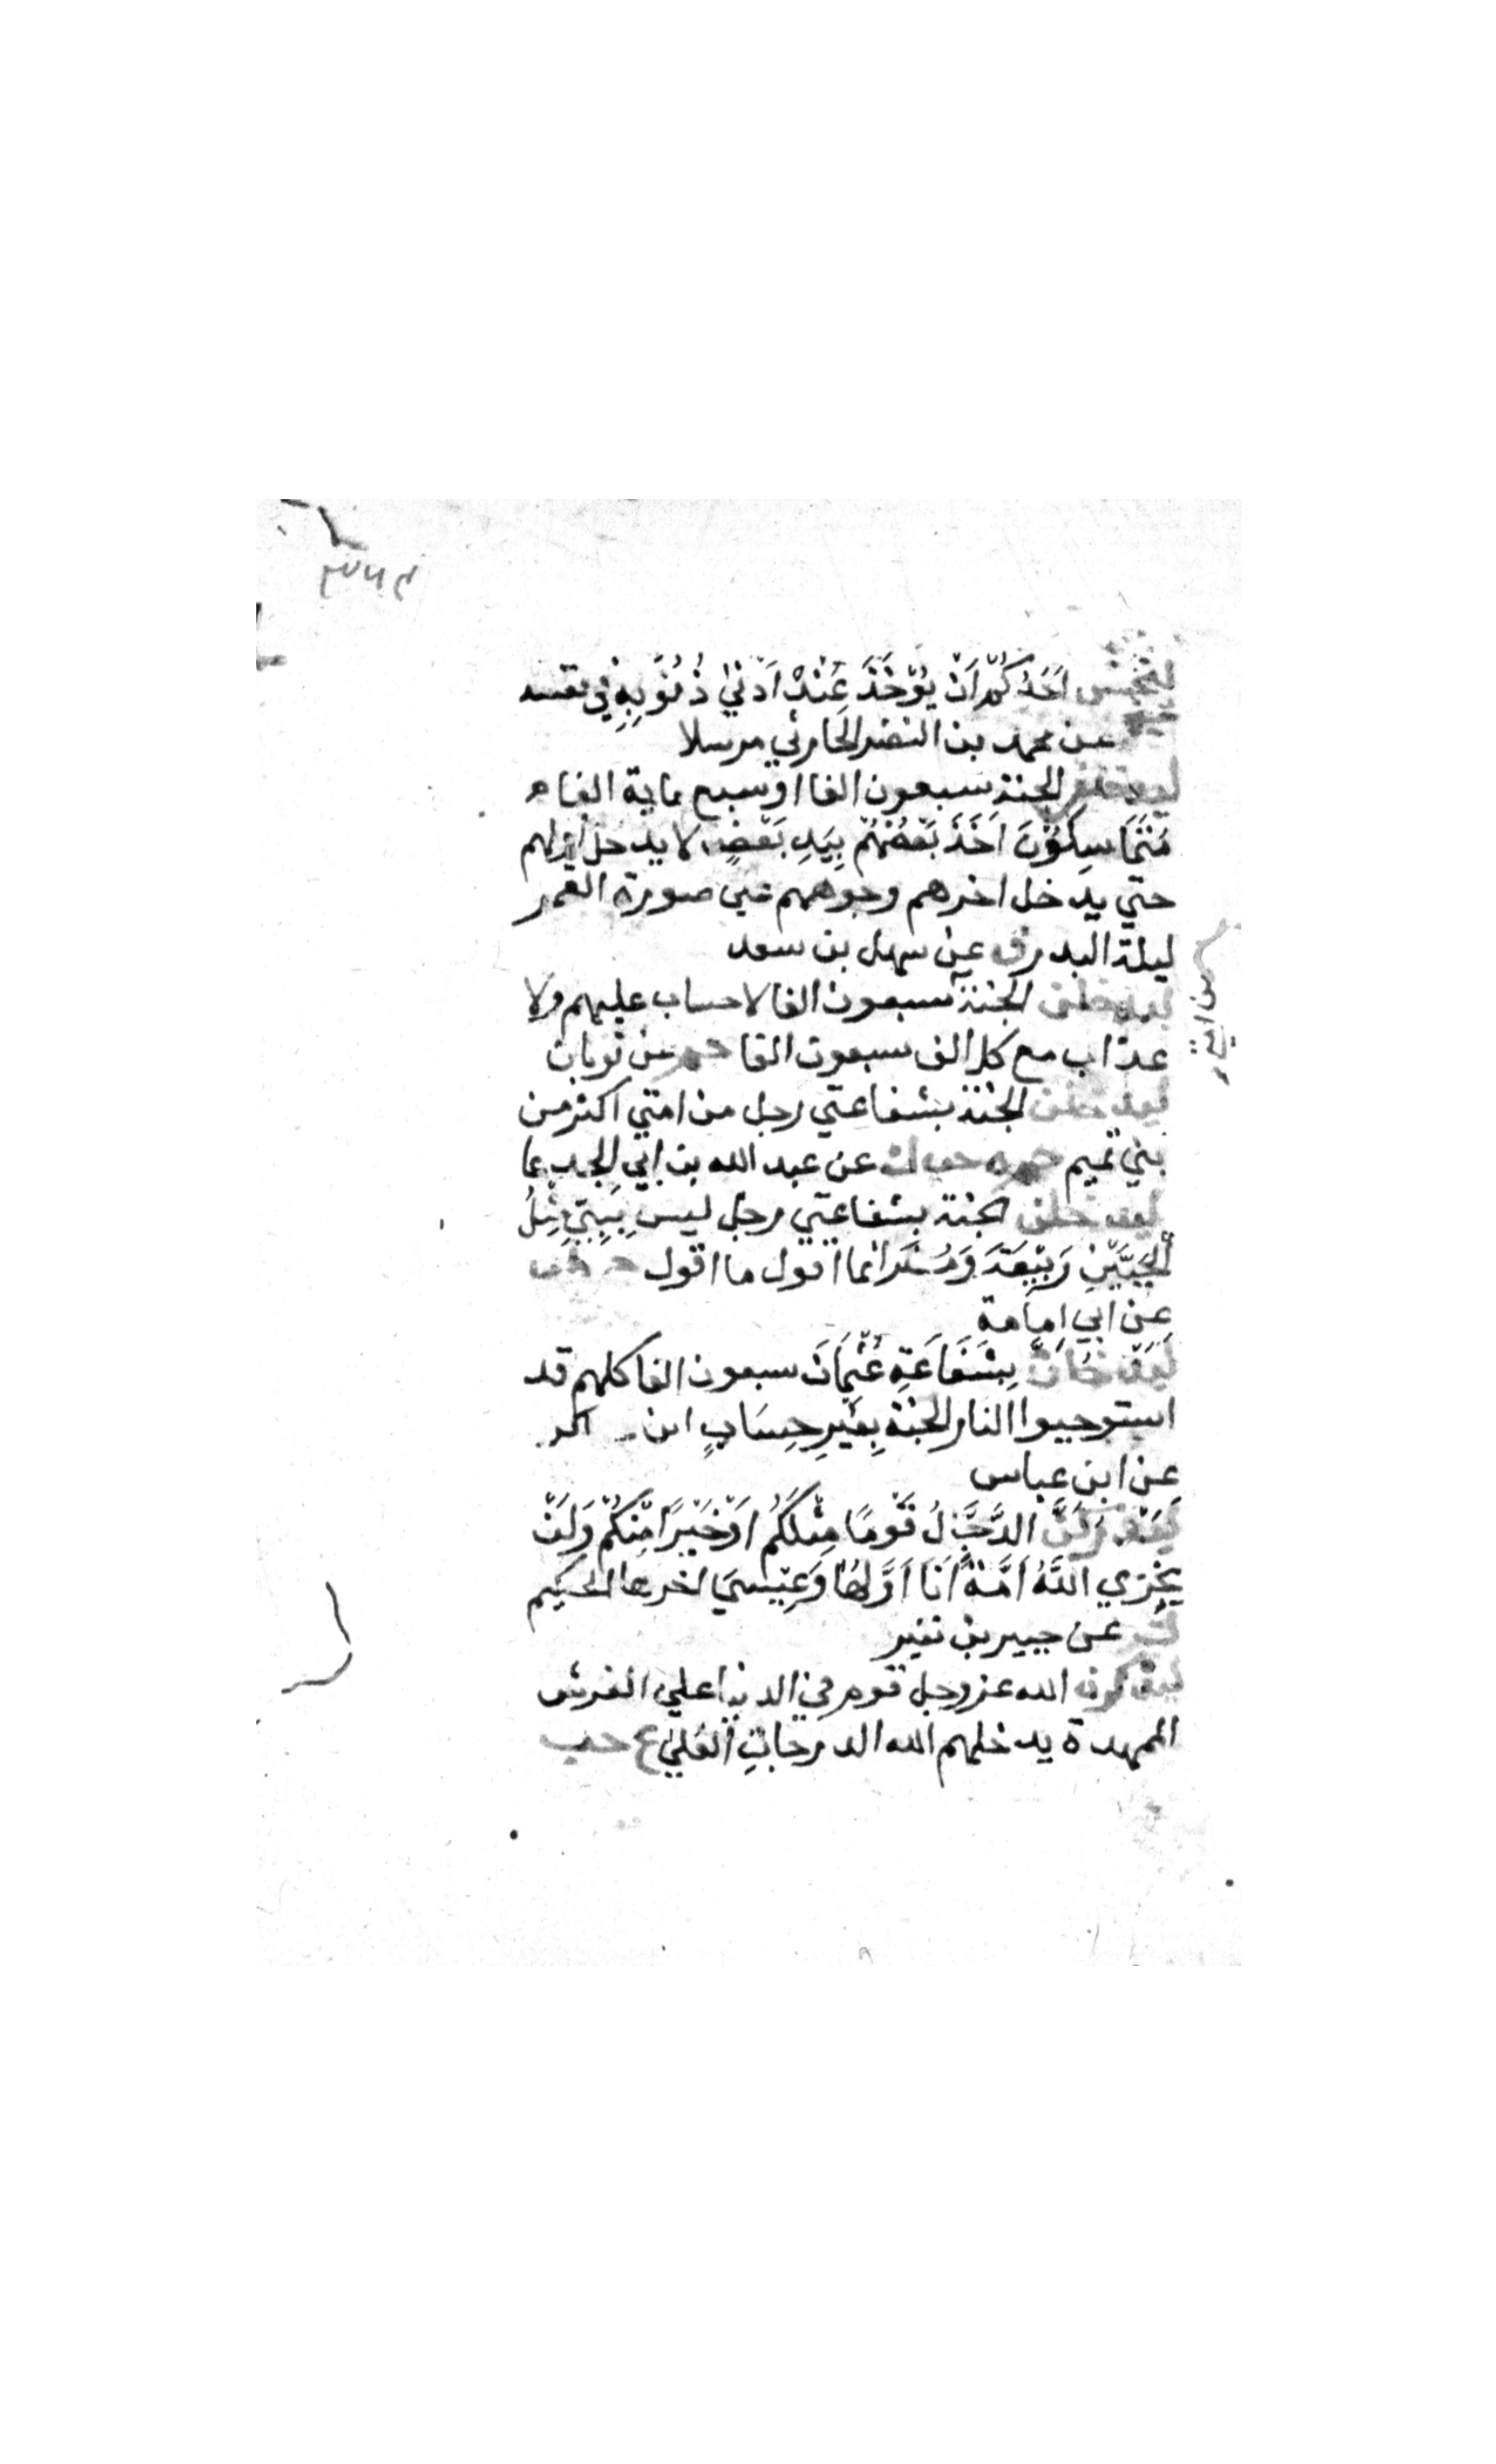 ليخش احدكم ان يؤخذ عند ادنى ذنوبه في نفسه
عن محمد بن النضر الحارثي مرسلا
ليدخلن الجنة سبعون الفا او سبع ماية الف
متماسكون اخذ بعضهم بيد بعض لا يدخل اولهم
حتي يدخل اخرهم وجوههم علي صورة القمر
ليلة البدر ق عن سهل بن سعد
ليدخلن الجنة سبعون الفا لا حساب عليهم ولا
عذاب مع كل الف سبعون الفا حم عن ثوبان
من امتي
ليدخلن الجنة بشفاعتي رجل من امتي اكثر من
بني تميم حم ه حب ك عن عبد الله بن ابي الجدعا
ليدخلن الجنة بشفاعتي رجل ليس بنبي مثل
الحيين ربيعة ومضر انما اقول ما اقول حم طب
عن ابي امامة
ليدخلن بشفاعة عثمان سبعون الفا كلهم قد
استوجبوا النار الجنة بغير حساب ابن
عن ابن عباس
ليدركن الدجال قوما مثلكم او خيرا منكم ولن
يخزي الله امة انا اولها وعيسى اخرها الحكيم
ك عن جبير بن نفير
ليذكرن الله عز وجل قوم في الدنيا علي الفرش
الممهدة يدخلهم الله الدرجات العلى ع حب